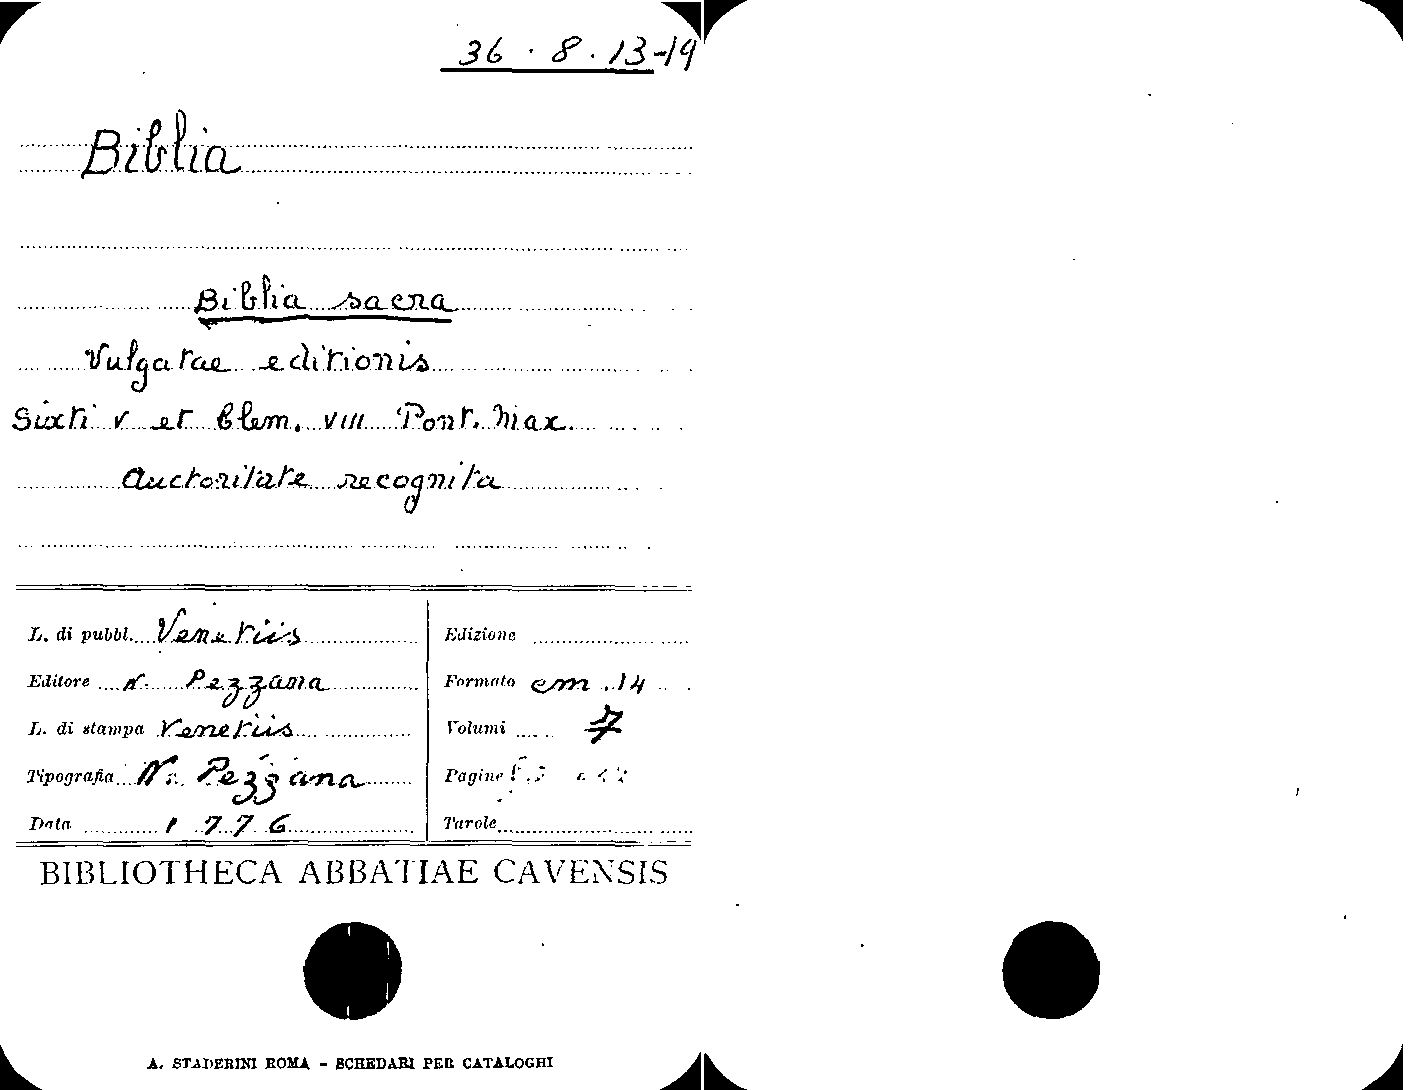 36 · 8 · 13-19
Biblia
Biblia sacra
Vulgatae editionis
Sixti V et Clem. VIII Pont. Max.
auctoritate recognita
L. di pubbl. Venetiis
Editore N. Pezzana
L. di stampa Venetiis
Tipografia N. Pezzana
Data 1776
Edizione
Formato cm. 14
Volumi 7
Pagine
Tavole
BIBLIOTHECA ABBATIAE CAVENSIS
A. STADERINI ROMA - SCHEDARI PER CATALOGHI